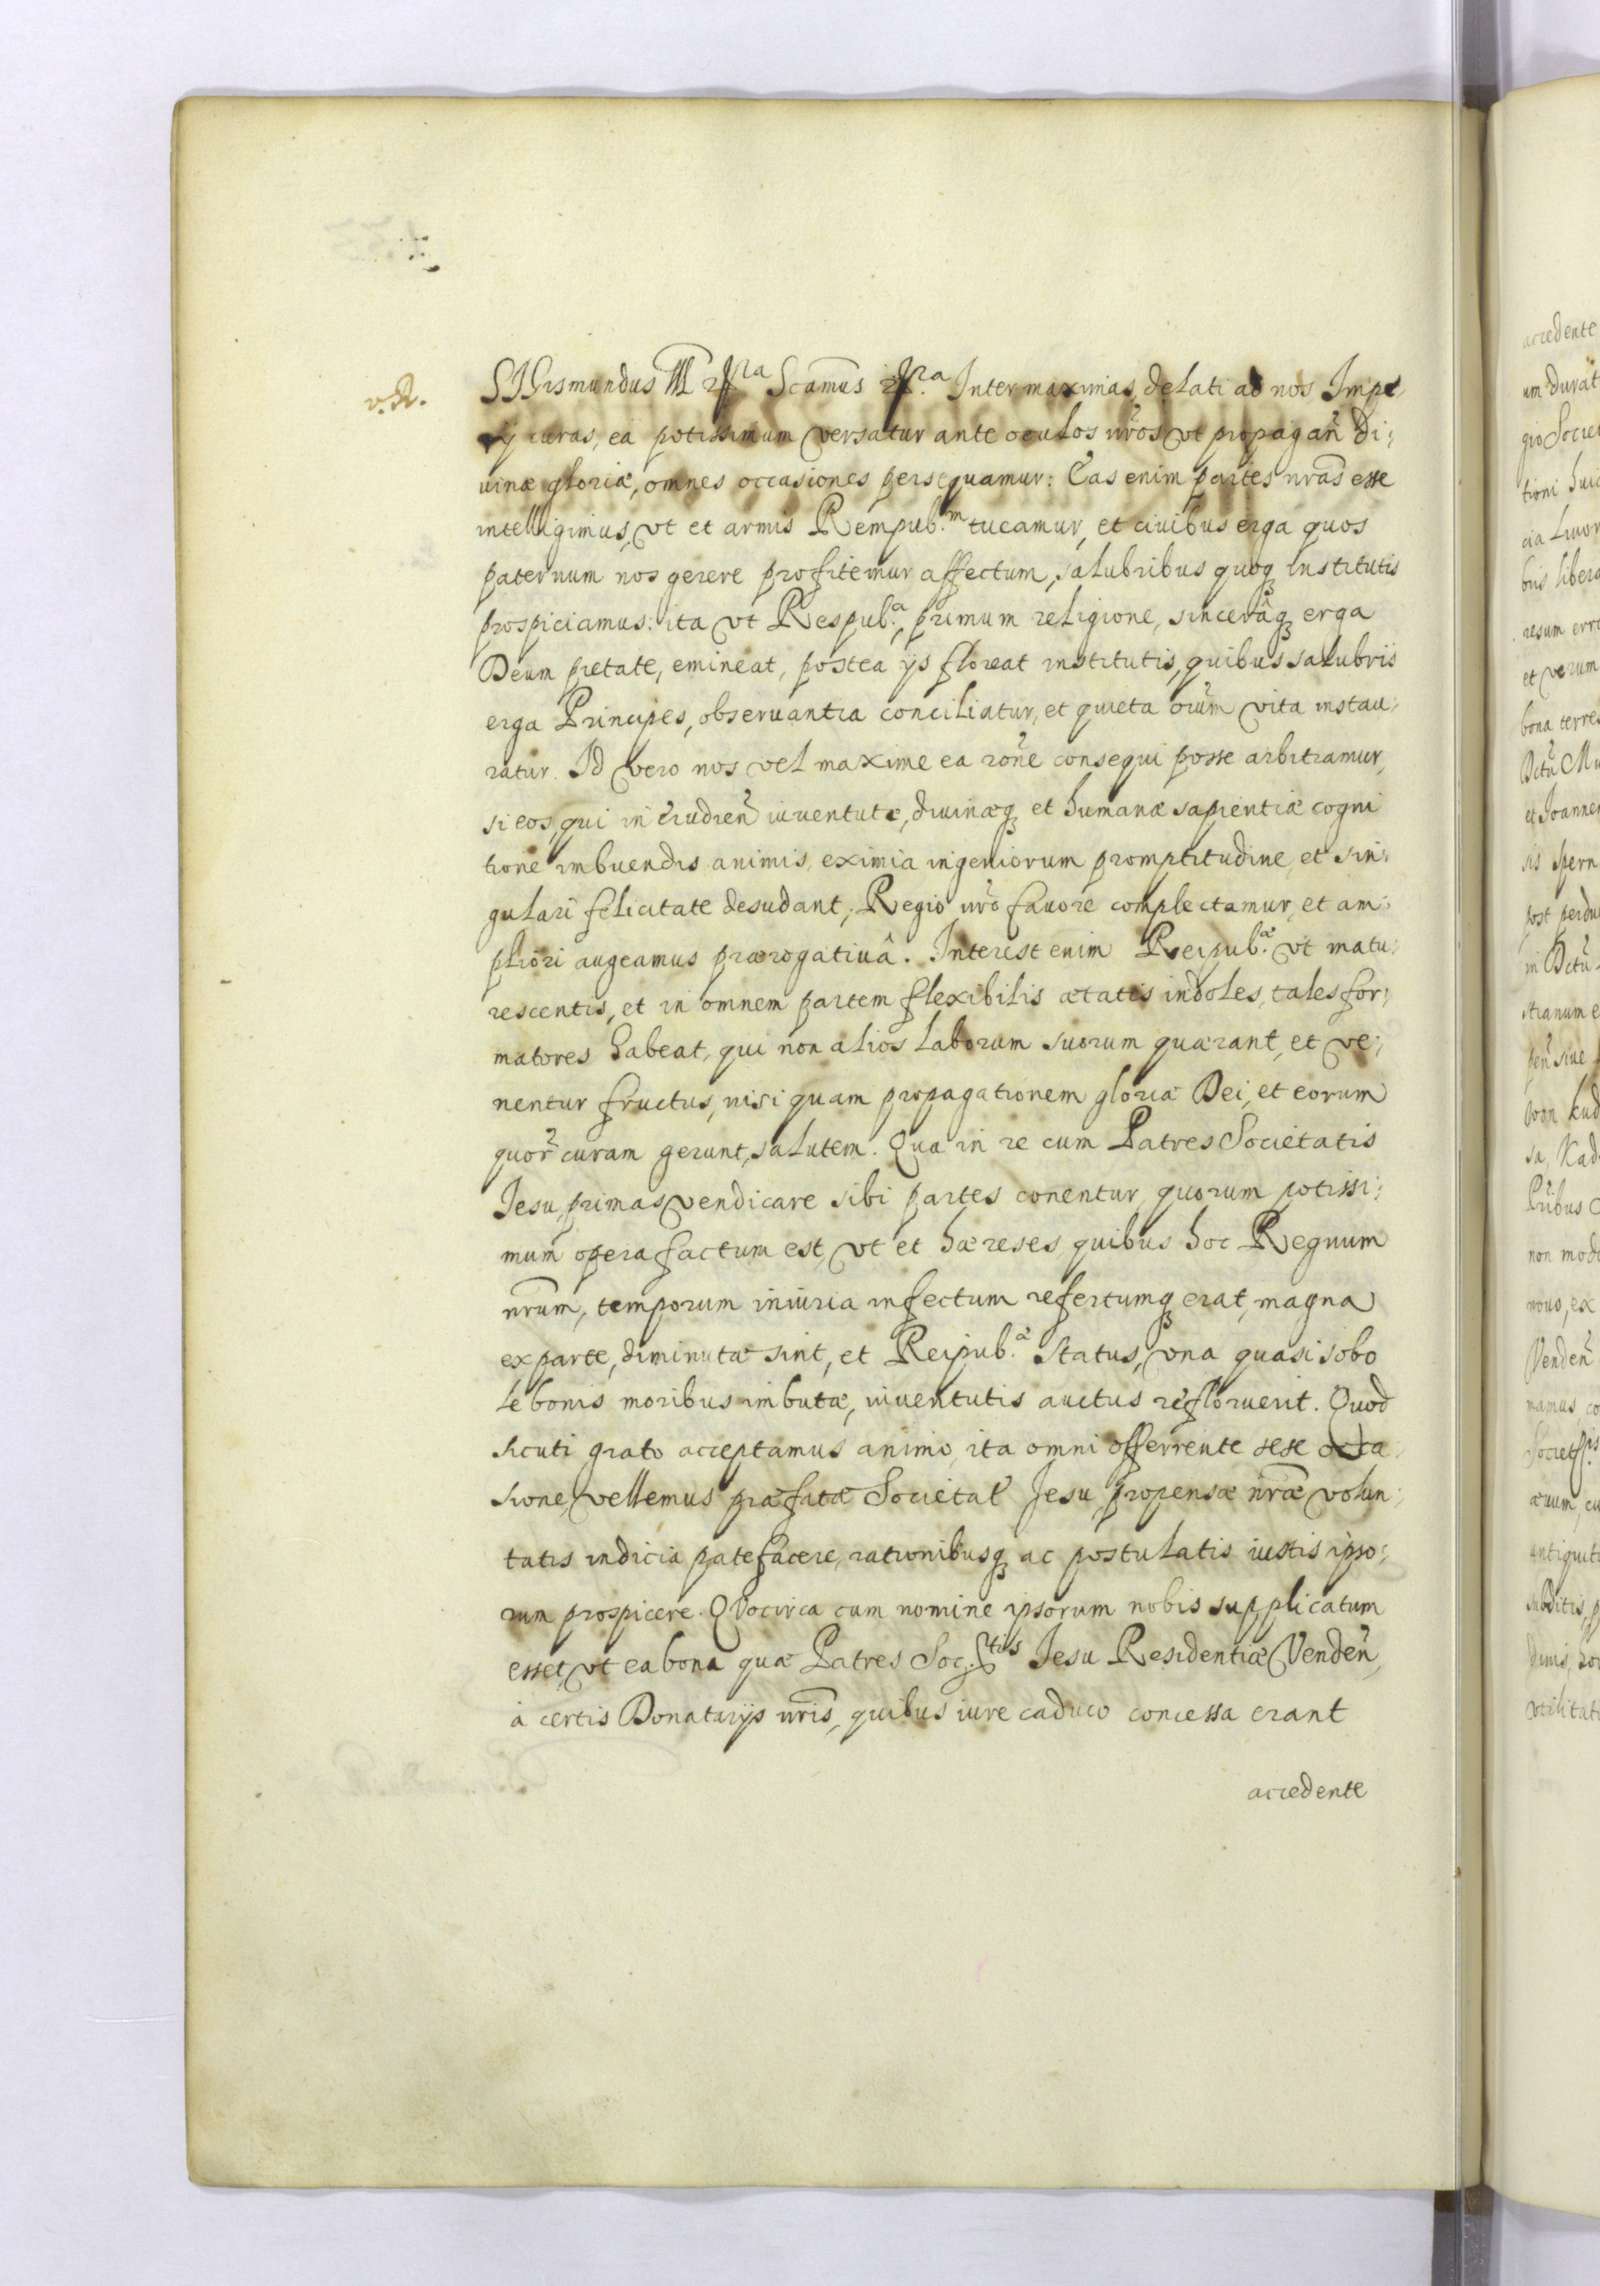 v. R.
SIGismundus III etra Scamus etra. Inter maximas, delati ad nos Impe,
rij curas, ea potissimum versatur ante oculos nr̃os vt propagañ di:
uinæ gloriæ, omnes occasiones persequamur: Eas enim partes nr̃as esse
intelligimus, vt et armis Rempub.m tueamur, et ciuibus erga quos
paternum nos gerere profitemur affectum, salubribus quoq; institutis
prospiciamus: ita vt Respub.a, primum religione, sincerâq; erga
Deum pietate, emineat, postea ijs floreat institutis, quibus salubris
erga Principes, obseruantia conciliatur, et quieta oĩum vita instau:
ratur. Id vero nos vel maxime ea rõne consequi posse arbitramur,
si eos, qui in erudieñ iuuentute, diuinæq; et humanæ sapientiæ cogni
tione imbuendis animis, eximia ingeniorum promptitudine, et sin:
gulari felicitate desudant, Regio nr̃o fauore complectamur, et am:
pliori augeamus prærogatiuâ. Interest enim Reipub.æ vt matu:
rescentis, et in omnem partem flexibilis ætatis indoles, tales for:
matores habeat, qui non alios laborum suorum quærant, et ve:
nentur fructus, nisi quam propagationem gloriæ Dei, et eorum
quor̃ curam gerunt, salutem. Qua in re cum Patres Societatis
Jesu, primas vendicare sibi partes conentur, quorum potissi:
mum opera factum est, vt et hæreses, quibus hoc Regnum
nrũm, temporum iniuria infectum refertumq; erat, magna
ex parte, diminutæ sint, et Reipub.æ status, vna quasi sobo
le bonis moribus imbutæ, iuuentutis auctus refloruerit. Quod
sicuti grato acceptamus animo, ita omni offerrente sese occa
sione, vellemus præfatæ Societat̃ Jesu, propensæ nrãe volun:
tatis indicia patefacere, rationibusq; ac postulatis iustis ipso:
rum prospicere. Quocirca cum nomine ipsorum nobis supplicatum
esset, vt ea bona quæ Patres Soc.tis Jesu Residentiæ Vendeñ,
à certis Donatarijs nrĩs, quibus iure caduco concessa erant
accedente